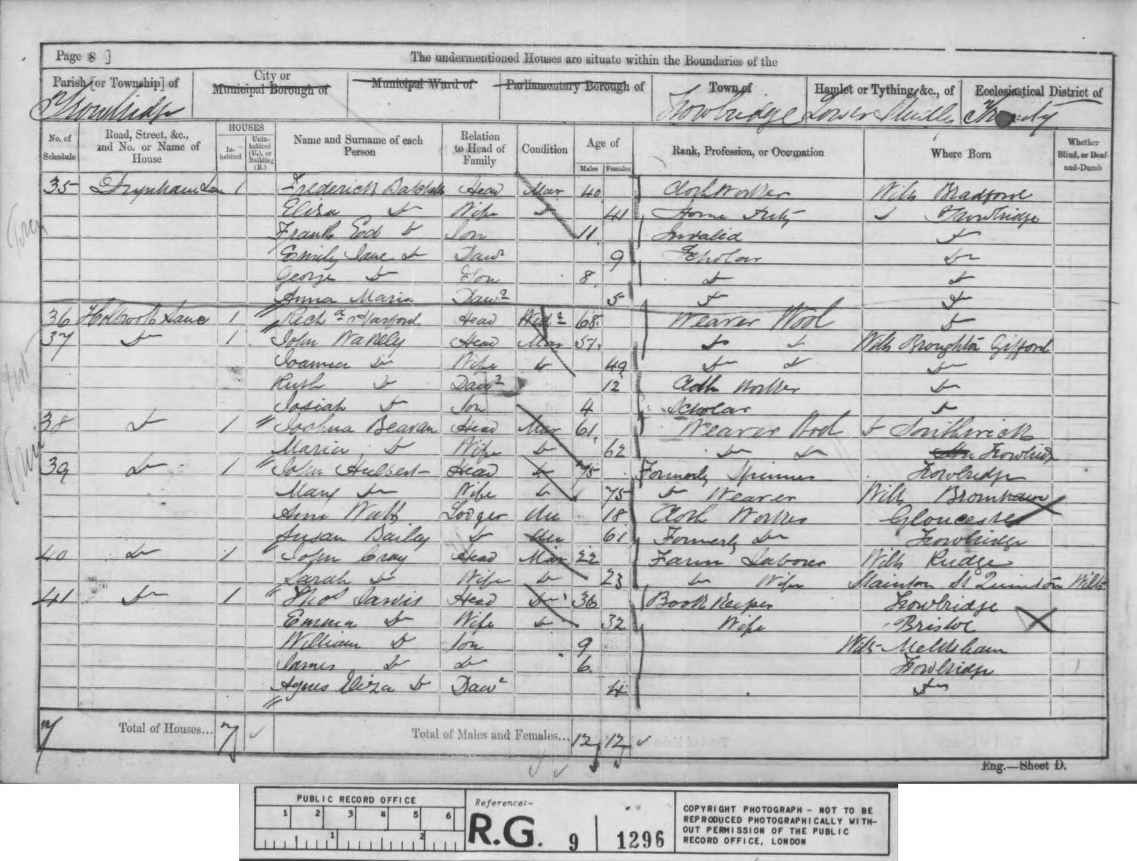 Page 8 ]
The undermentioned Houses are situate within the Boundaries of the
Parish [or Township] of City or Municipal Borough of Municipal Ward of Parliamentary Borough of Town of Hamlet or Tything, &c., of Ecclesiastical District of
Trowbridge Trowbridge Lower Trinity
No. of Schedule Road, Street, &c., and No. or Name of House HOUSES Inhabited Uninhabited (U.), or Building (B.) Name and Surname of each Person Relation to Head of Family Condition Age of Males Females Rank, Profession, or Occupation Where Born Whether Blind, or Deaf-and-Dumb
35 Drynham Lane 1 Frederick Head Mar 40 Cloth Worker Wilts Bradford
Eliza Do Wife Do 41 Home Duty Do Trowbridge
Frank Do Son 11 Invalid Do
Emily Jane Do Daur 9 Scholar Do
George Do Son 8 Do Do
Anna Maria Daur 5 Do Do
36 Holbrook Lane 1 Head Widr 68 Weaver Wool Do
37 Do 1 John Wakely Head Mar 57 Do Do Wilts Broughton Gifford
Joanna Do Wife Do 49 Do Do Do
Ruth Do Daur 12 Cloth Worker Do
Josiah Do Son 4 Scholar Do
38 Do 1 Joshua Beavan Head Mar 61 Weaver Wool Do Southwick
Maria Do Wife Do 62 Do Do Trowbridge
39 Do 1 John Hulbert Head Do 75 Formerly Spinner Trowbridge
Mary Do Wife Do 75 Do Weaver Wilts Bromham
Ann Watts Lodger Un 18 Cloth Worker Gloucester
Susan Bailey Do Un 61 Formerly Do Trowbridge
40 Do 1 John Gray Head Mar 22 Farm Labourer Wilts Rudge
Sarah Do Wife Do 23 Do Wife Stainton St Quinton Wilts
41 Do 1 Thos Jarvis Head Do 36 Book Keeper Trowbridge
Emma Do Wife Do 32 Wife Bristol
William Do Son 9 Wilts Melksham
James Do Do 6 Trowbridge
Agnes Eliza Do Daur 4 Do
7 Total of Houses... 7 Total of Males and Females... 12 12
Eng.—Sheet D.
PUBLIC RECORD OFFICE
1 2 3 4 5 6
1 2
Reference:-
R.G. 9 1296
COPYRIGHT PHOTOGRAPH - NOT TO BE
REPRODUCED PHOTOGRAPHICALLY WITH-
OUT PERMISSION OF THE PUBLIC
RECORD OFFICE, LONDON